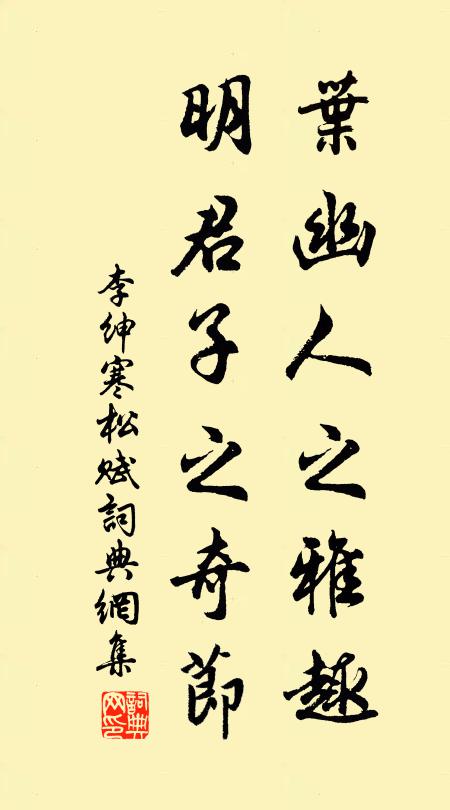 葉幽人之雅趣
明君子之奇節
李紳寒松賦詞典網集
詞典
网印